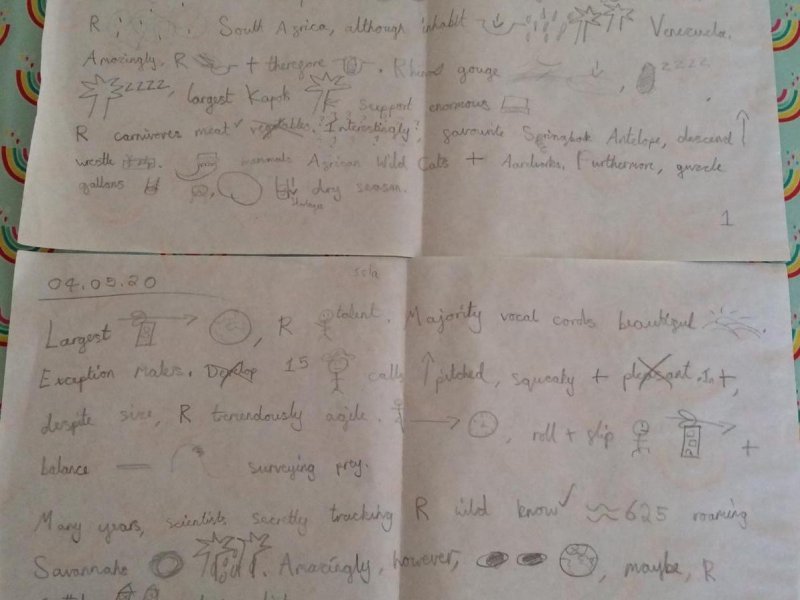 R South Africa, although inhabit Venezuela.
Amazingly, R + therefore . Rhinos gouge , zzzz
zzzz, largest Kapok support enormous .
R carnivores meat ✓ vegetables. Interestingly, favourite Springbok Antelope, descend ↑
wrestle . mammals African Wild Cats + Aardvarks. Furthermore, guzzle
gallons , dry season.
1
04.05.20
Largest → , R talent. Majority vocal cords beautiful .
Exception males. Develop 15 calls ↑ pitched, squeaky + pleasant. In +,
despite size, R tremendously agile. → , roll + flip → +
balance surveying prey.
Many years, scientists secretly tracking R wild know ✓ ≈ 625 roaming
Savannahs . Amazingly, however, , maybe, R